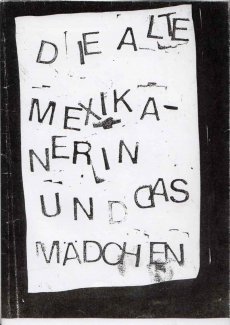 DIE ALTE
MEXIKA-
NERIN
UND DAS
MÄDCHEN